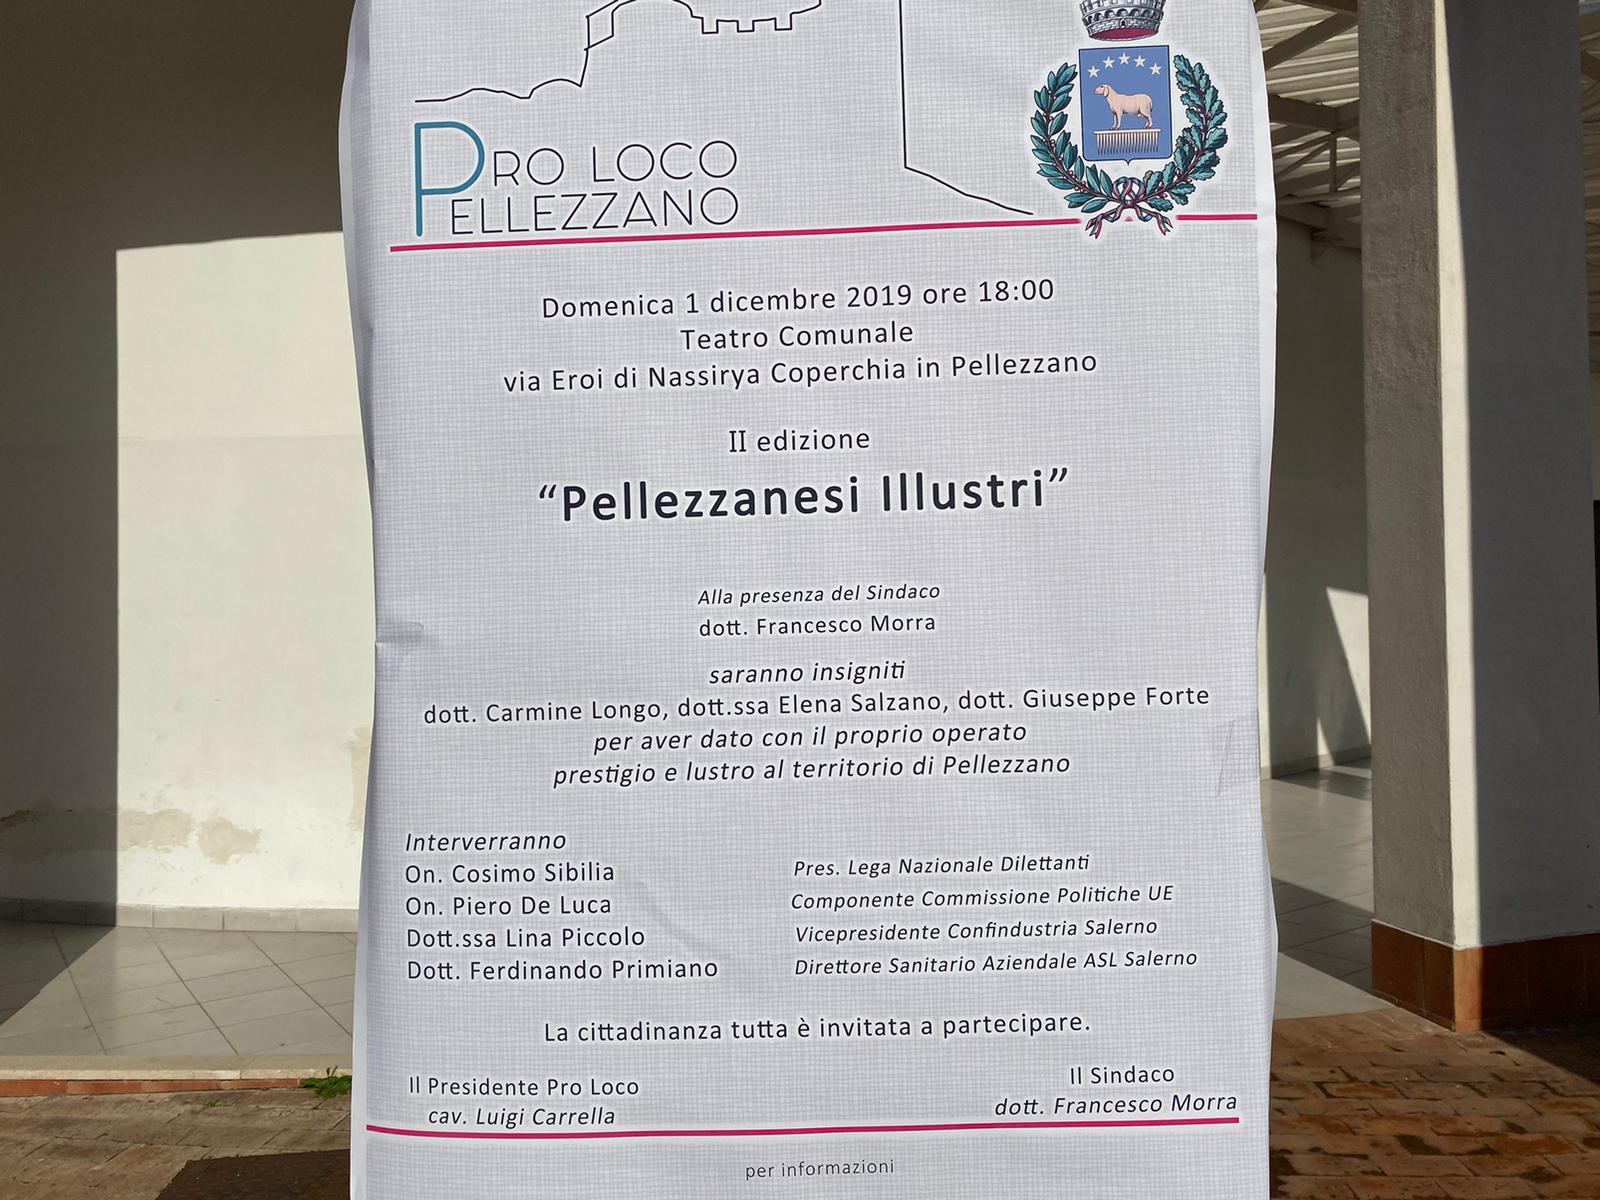 PRO LOCO
PELLEZZANO
Domenica 1 dicembre 2019 ore 18:00
Teatro Comunale
via Eroi di Nassirya Coperchia in Pellezzano
II edizione
“Pellezzanesi Illustri”
Alla presenza del Sindaco
dott. Francesco Morra
saranno insigniti
dott. Carmine Longo, dott.ssa Elena Salzano, dott. Giuseppe Forte
per aver dato con il proprio operato
prestigio e lustro al territorio di Pellezzano
Interverranno
On. Cosimo Sibilia Pres. Lega Nazionale Dilettanti
On. Piero De Luca Componente Commissione Politiche UE
Dott.ssa Lina Piccolo Vicepresidente Confindustria Salerno
Dott. Ferdinando Primiano Direttore Sanitario Aziendale ASL Salerno
La cittadinanza tutta è invitata a partecipare.
Il Presidente Pro Loco
cav. Luigi Carrella
Il Sindaco
dott. Francesco Morra
per informazioni